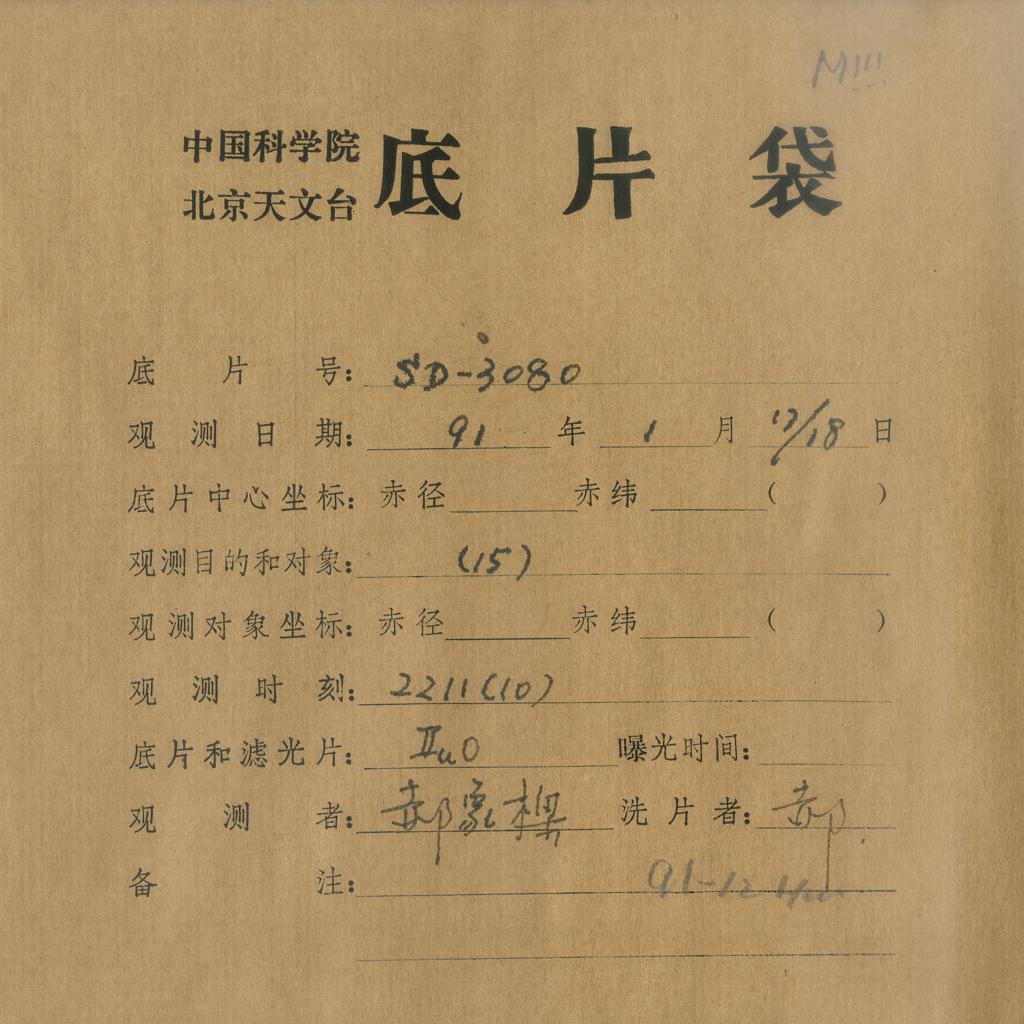 MIII
中国科学院
北京天文台
底片袋
底片号: SD-3080
观测日期: 91年1月17/18日
底片中心坐标: 赤径 赤纬 ( )
观测目的和对象: (15)
观测对象坐标: 赤径 赤纬 ( )
观测时刻: 2211(10)
底片和滤光片: IIaO 曝光时间:
观测者: 郝象樑 洗片者: 郝
备注: 91-12